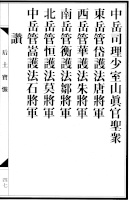 中岳司理少室山真官聖衆
東岳管岱護法唐將軍
西岳管華護法朱將軍
南岳管衡護法鄒將軍
北岳管恒護法莫將軍
中岳管嵩護法石將軍
讚
后土寶懺
四七